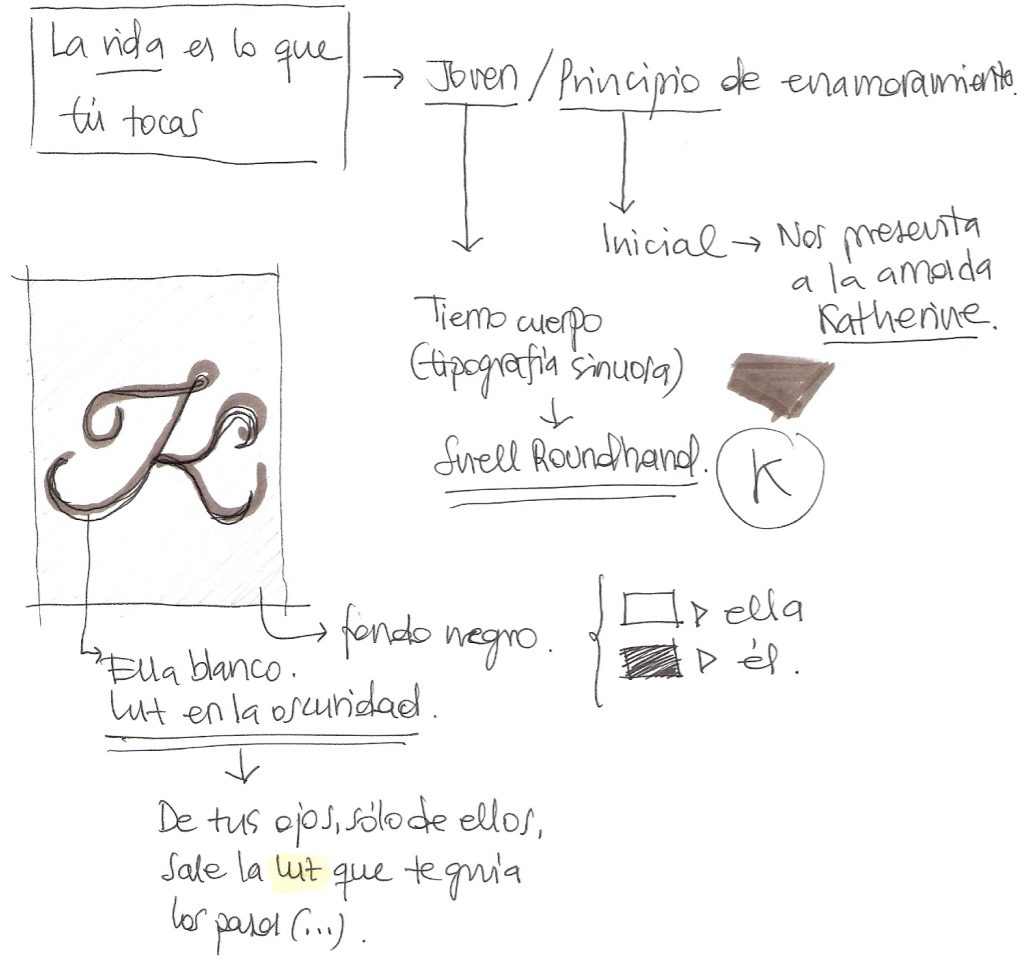 La vida es lo que
tú tocas
→ Joven / Principio de enamoramiento.
Inicial → Nos presenta
a la amada
Katherine.
Tierno cuerpo
(tipografía sinuosa)
Snell Roundhand.
K
K
fondo negro.
ella
él.
Ella blanco.
luz en la oscuridad.
De tus ojos, sólo de ellos,
sale la luz que te guía
los pasos (...).